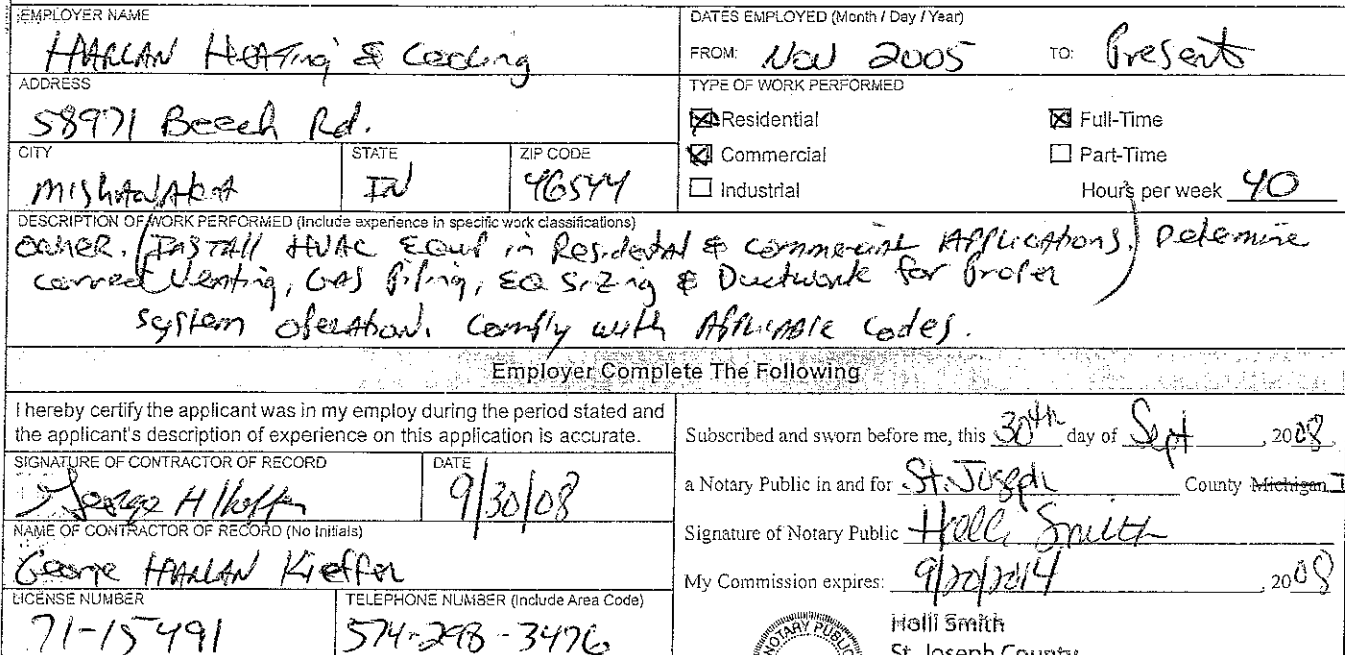 EMPLOYER NAME
HARLAN HEATing & Cooling
DATES EMPLOYED (Month / Day / Year)
FROM: Nov 2005 TO: Present
ADDRESS
58971 Beech Rd.
TYPE OF WORK PERFORMED
Residential
Full-Time
Commercial
Part-Time
Industrial
Hours per week 40
CITY
MISHAWAKA
STATE
IN
ZIP CODE
46544
DESCRIPTION OF WORK PERFORMED (Include experience in specific work classifications)
OWNER. (INSTAll HVAC Equip in Residental & commercial Applications.) Determine
correct Venting, GAS Piping, EQ Sizing & Ductwork for Proper
system operation. Comply with Applicable Codes.
Employer Complete The Following
I hereby certify the applicant was in my employ during the period stated and
the applicant's description of experience on this application is accurate.
SIGNATURE OF CONTRACTOR OF RECORD
DATE
9/30/08
NAME OF CONTRACTOR OF RECORD (No Initials)
George HARLAN Kieffer
LICENSE NUMBER
71-15491
TELEPHONE NUMBER (Include Area Code)
574-298-3476
Subscribed and sworn before me, this 30th day of Sept, 2008
a Notary Public in and for St. Joseph County Michigan I
Signature of Notary Public Holli Smith
My Commission expires: 9/20/2014, 2008
NOTARY PUBLIC
Holli Smith
St. Joseph County